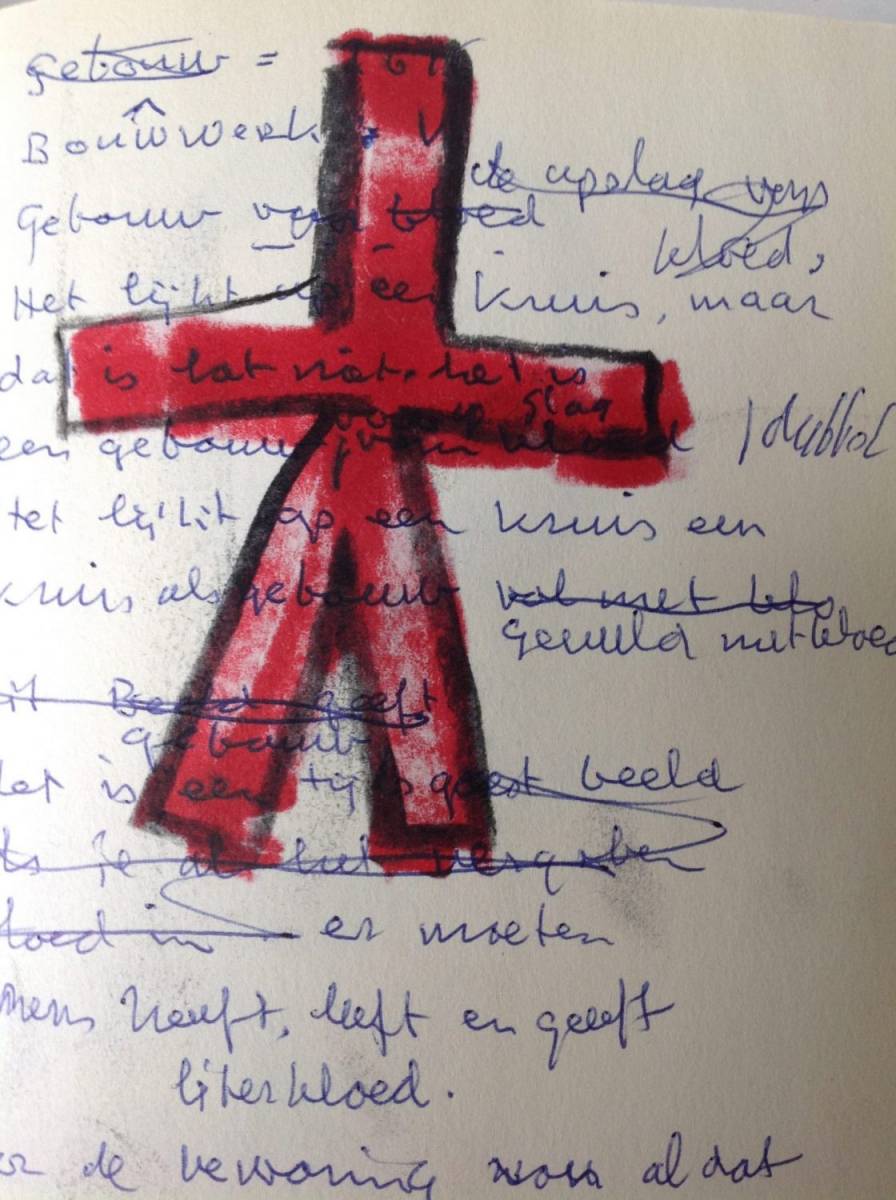 gebouw =
Bouwwerk
de opslag van
Gebouw van bloed
bloed,
Het lijkt op een kruis, maar
dat is het niet. het is
opslag
een gebouw van bloed / dubbel
Het lijkt op een kruis een
kruis als gebouw vol met
gevuld met bloed
Beeld geeft
gebouw
Het is een tijdsgeest beeld
je als het
bloed in er moeten
mens heeft, leeft en geeft
liter bloed.
de bewaring van al dat